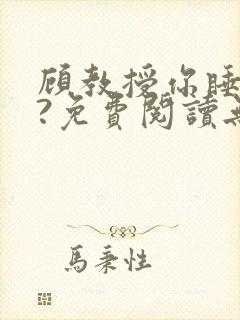 顧教授你睡
?免費閱讀
馬秉性